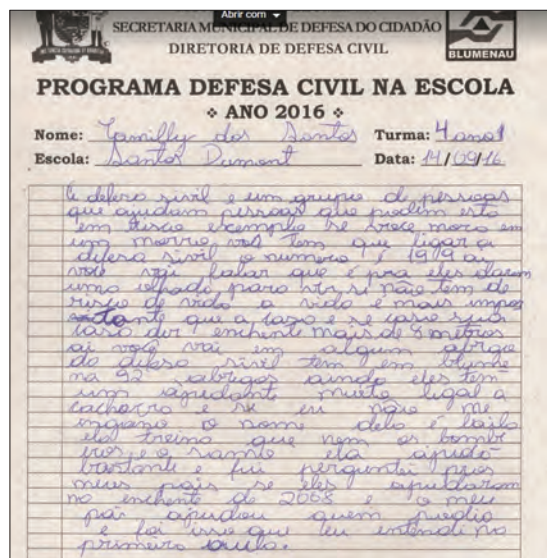 Abrir com
SECRETARIA MUNICIPAL DE DEFESA DO CIDADÃO
DIRETORIA DE DEFESA CIVIL
BLUMENAU
PROGRAMA DEFESA CIVIL NA ESCOLA
❖ ANO 2016 ❖
Nome: Tamilly dos Santos Turma: 4 ano 1
Escola: Santos Dumont Data: 14/09/16
A defesa sivil e um grupo de pessoas
que ajudam pessoas que podem esta
em risco exemplo se voce mora em
um morro vos tem que ligar a
difesa sivil o numero é 1979 ai
voce vai falar que é pra eles darem
uma olhada para ver si não tem de
risco de vida a vida e mais impor
tante que a casa e se caso sua
casa der enchente mais de 8 metros
ai você vai em algum abrigo
da difesa sivil tem em blume
na 92 abrigos ainda eles tem
um ajudante muito legal a
cachorra e se eu não me
engano o nome dela é
ela treina que nem os bombe
iros e o samu ela ajuda
bastante e fui perguntei pros
meus pais se eles ajudaram
na enchente de 2008 e o meu
pai ajudou quem podia
e foi isso que eu entendi na
primeira aula.